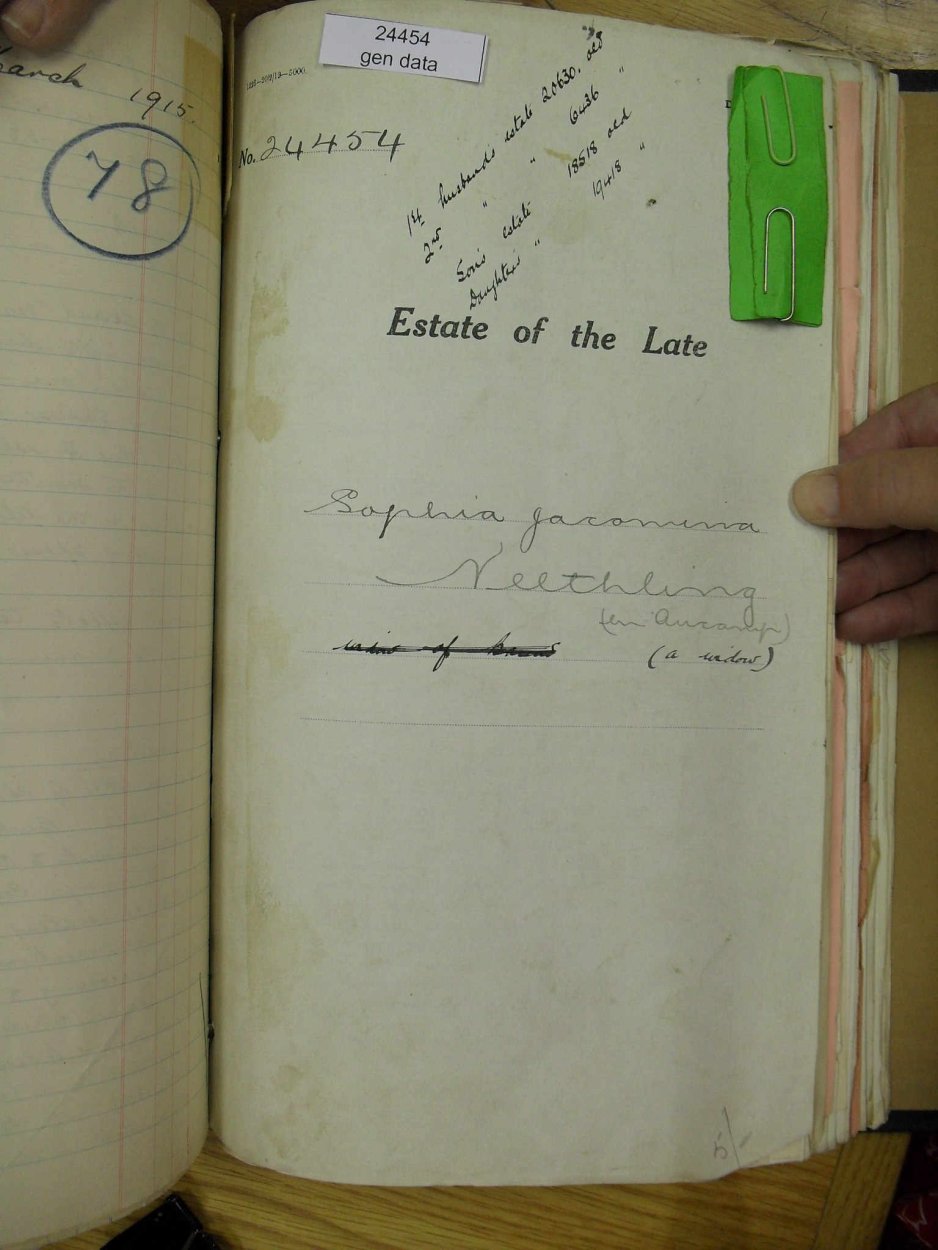 March
1915.
78
24454
gen data
No. 24454
1st husband's estate 20630. old
2nd " " 6436 "
Son's estate 18518 old
Daughters " 19418 "
Estate of the Late
Sophia Jacomina
Neethling
(en Aucamp)
of (a widow)